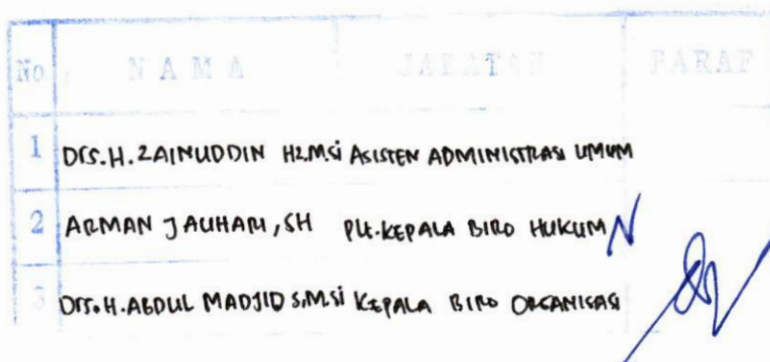 No. N A M A JABATAN PARAF
1 Drs. H. ZAINUDDIN HZ.M.Si ASISTEN ADMINISTRASI UMUM
2 ARMAN JAUHARI, SH Plt. KEPALA BIRO HUKUM
3 Drs. H. ABDUL MADJID S, M.Si KEPALA BIRO ORGANISASI